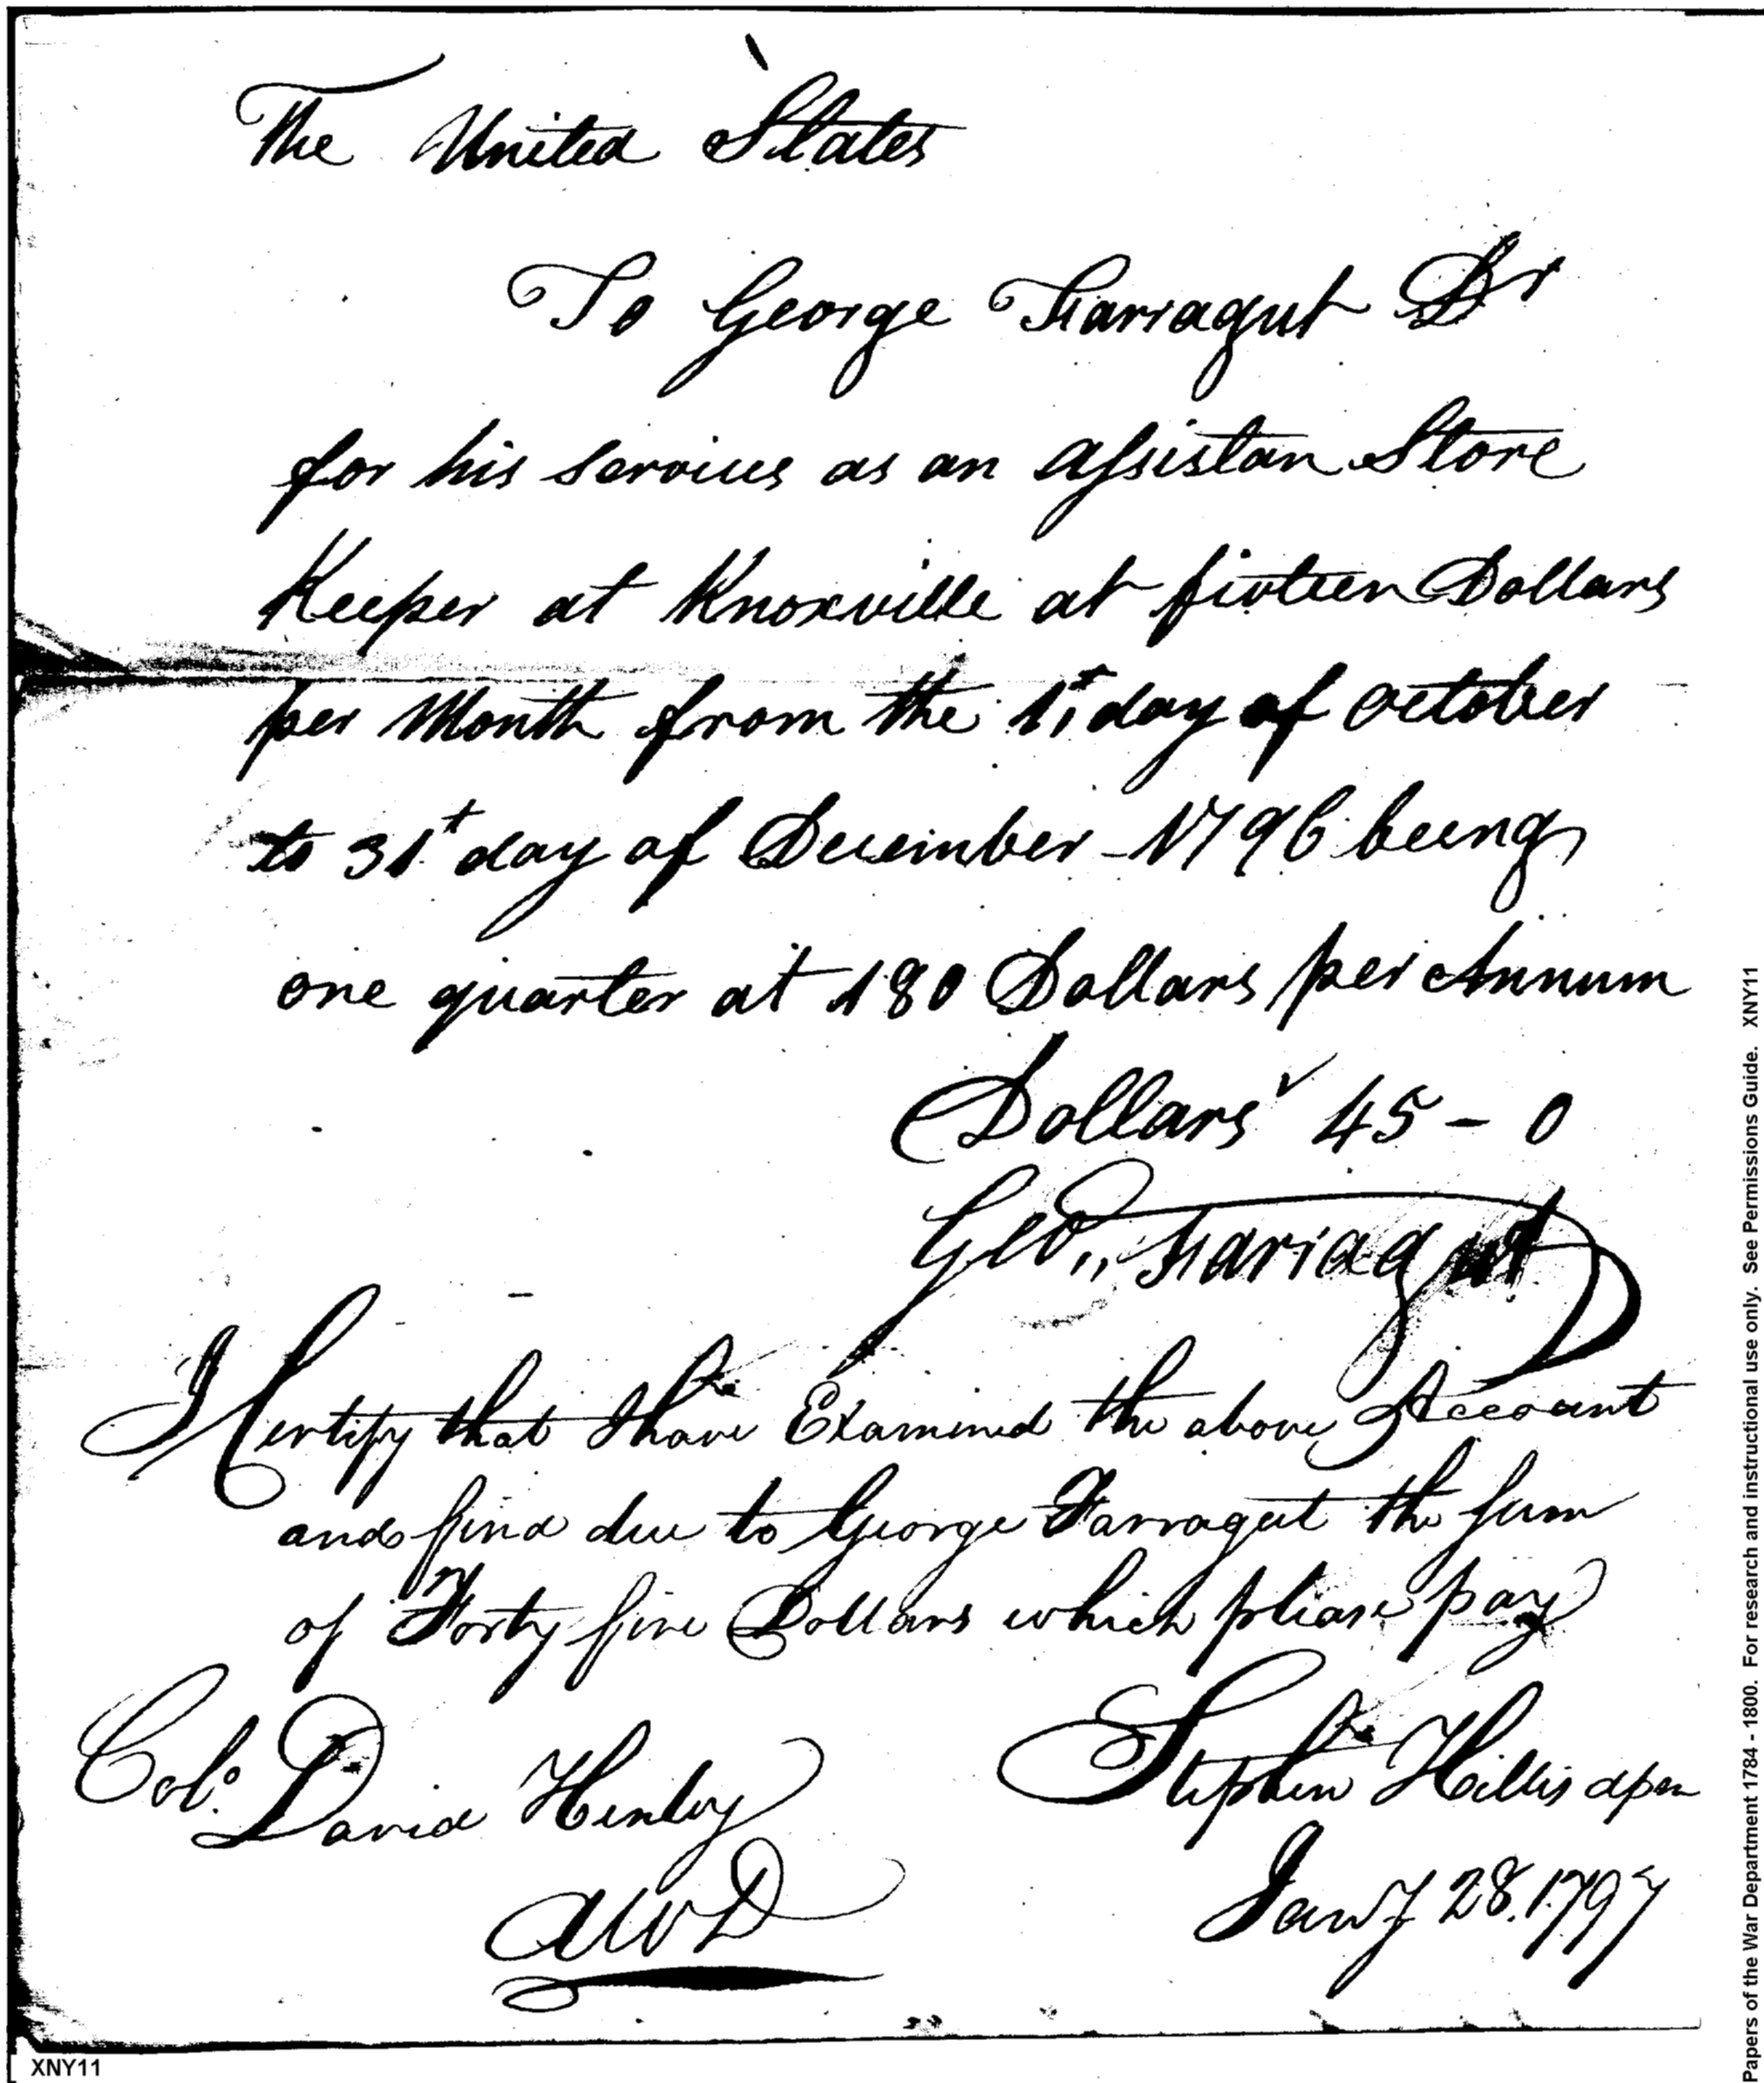 The United States
To George Farragut Dr
for his services as an assistan Store
Keeper at Knoxville at fivteen Dollars
per Month from the 1st, day of october
to 31st day of December - 1796 being
one quarter at 180 Dollars per Annum
Dollars 45 - 0
Geo,, Farragut
I Certify that I have Examined the above Account
and find due to George Farragut the sum
of Forty five Dollars which please pay
Stephen Hillis
Colo. David Henley
AWD
Jany 28. 1797
XNY11
Papers of the War Department 1784 - 1800. For research and instructional use only. See Permissions Guide. XNY11